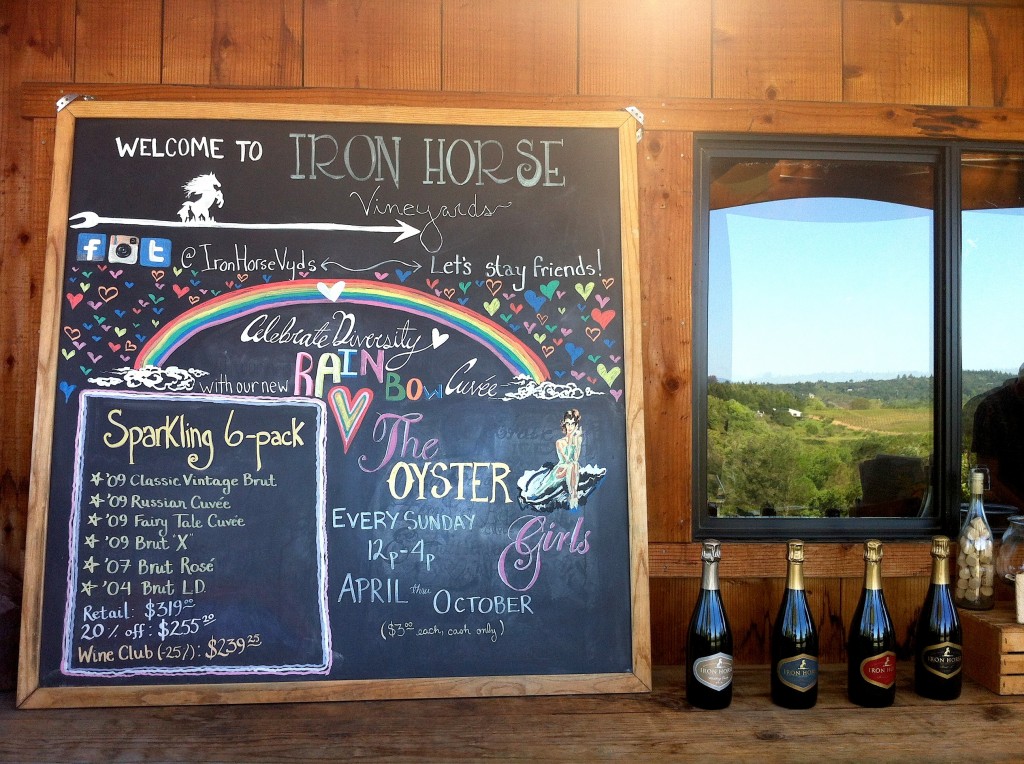 WELCOME TO IRON HORSE
Vineyards
f t @IronHorseVyds Let's stay friends!
Celebrate Diversity
with our new RAINBOW Cuvée
Sparkling 6-pack
'09 Classic Vintage Brut
'09 Russian Cuvée
'09 Fairy Tale Cuvée
'09 Brut "X"
'07 Brut Rosé
'04 Brut L.D.
Retail: $319.00
20% off: $255.20
Wine Club (-25%): $239.25
The
OYSTER
Girls
EVERY SUNDAY
12p-4p
APRIL thru OCTOBER
($3.00 each, cash only)
IRON HORSE
IRON HORSE
IRON HORSE
IRON HORSE